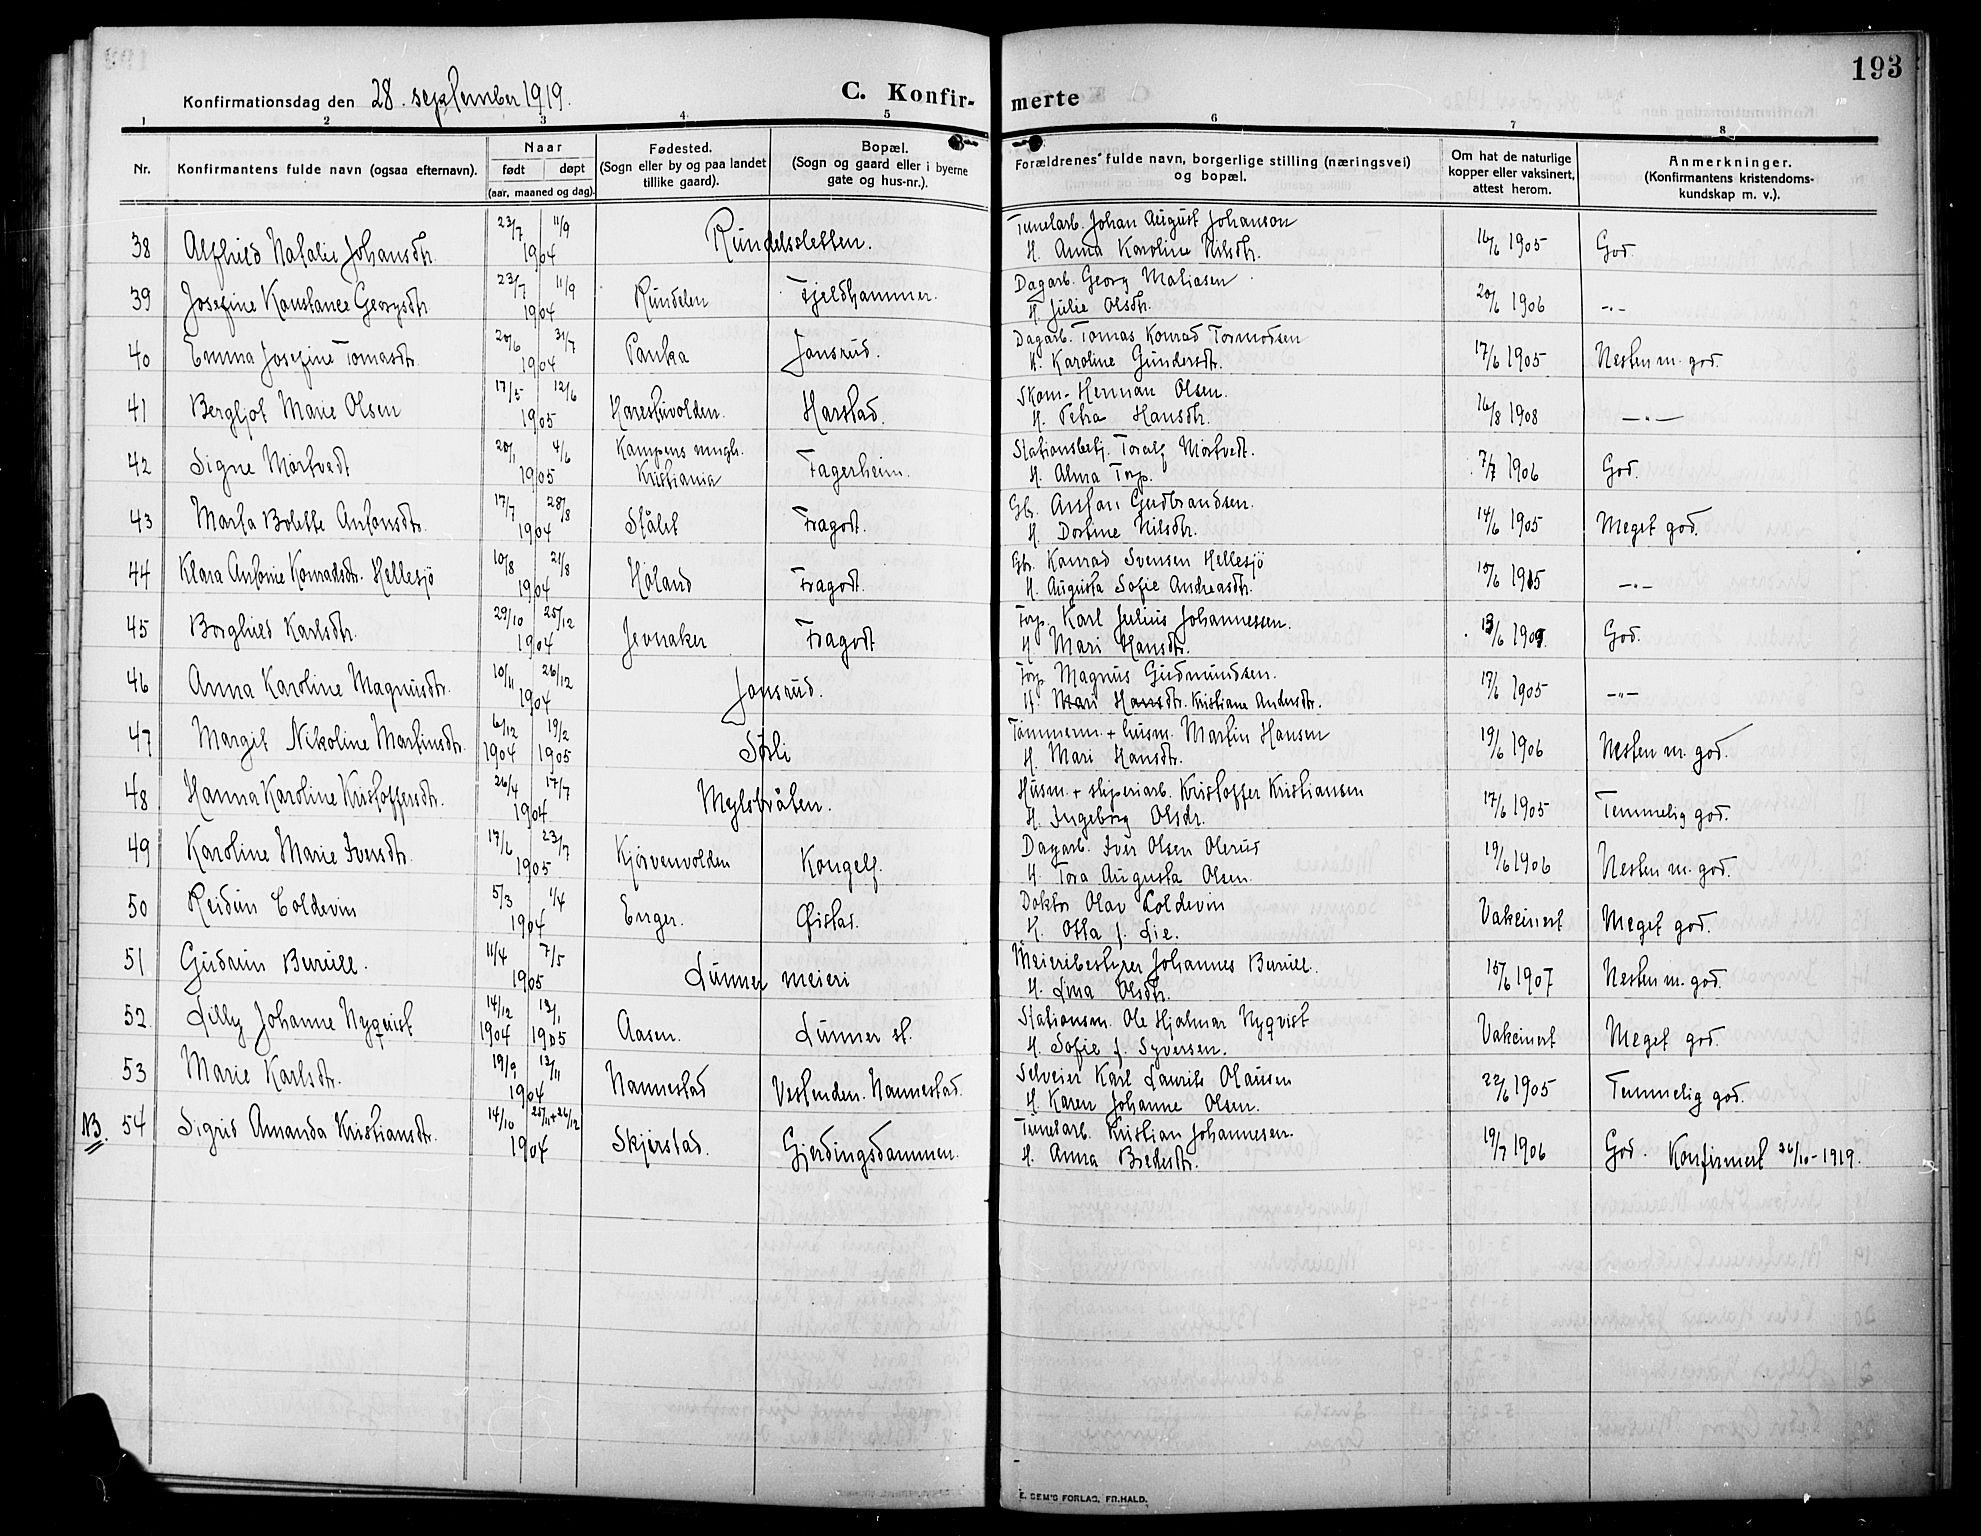 193
Konfirmationsdag den 28. september 1919.
C. Konfir- merte
1 2 3 4 5 6 7 8
Nr.
Konfirmantens fulde navn (ogsaa efternavn).
Naar
født døpt
(aar, maaned og dag).
Fødested.
(Sogn eller by og paa landet
tillike gaard).
Bopæl.
(Sogn og gaard eller i byerne
gate og hus-nr.).
Forældrenes' fulde navn, borgerlige stilling (næringsvei)
og bopæl.
Om hat de naturlige
kopper eller vaksinert,
attest herom.
Anmerkninger.
(Konfirmantens kristendoms-
kundskap m. v.).
23/7 11/9 Tunelarb. Johan August Johanson
38 Alfhild Natalie Johansdtr. 1904 Rundelsletten. H. Anna Karoline Nilsdtr. 16/6 1905 God.
23/7 11/9 Dagarb. Georg Matiasen
39 Josefine Konstance Georgsdtr. 1904 Rundelen Fjeldhammer. H. Julie Olsdtr. 20/6 1906 -"-
20/6 31/7 Dagarb. Tomas Konrad Tormodsen
40 Emma Josefine Tomasdtr. 1904 Panka Jonsrud. H. Karoline Gundersdtr. 17/6 1905 Nesten m. god.
17/5 12/6 Skom. Herman Olsen.
41 Bergljot Marie Olsen 1905 Harestuvolden. Harstad. H. Petra Hansdtr. 16/8 1908 -"-
20/1 4/6 Kampens mngh. Stationsbetj. Toralf Mortvedt.
42 Signe Mortvedt 1905 Kristiania Fagerheim. H. Alma Torp. 7/7 1906 God.
17/7 28/8 Gbr. Anton Gudbrandsen.
43 Marta Bolette Antonsdtr. 1904 Stålet Fragot. H. Dortine Nilsdtr. 14/6 1905 Meget god.
10/8 21/8 Gbr. Konrad Svensen Hellesjö
44 Klara Antonie Konradsdtr. Hellesjö 1904 Höland Fragot. H. Augusta Sofie Andreasdtr. 15/6 1915 -"-
29/10 25/12 Torp. Karl Julius Johannessen.
45 Borghild Karlsdtr. 1904 Jevnaker Fragot H. Mari Hansdtr. God.
10/11 26/12 Torp. Magnus Gudmundsen.
46 Anna Karoline Magnusdtr. 1904 Jonsrud. H. Mari Hansdtr. Kristiane Andersdtr. 17/6 1905 -"-
6/12 19/2 Tömmerm. + husm. Martin Hansen
47 Margit Nikoline Martinsdtr. 1904 1905 Sørli H. Mari Hansdtr. 19/6 1906 Nesten m. god.
26/4 17/7 Husm. + sliperiarb. Kristoffer Kristiansen
48 Hanna Karoline Kristoffersdtr. 1904 Mylsbråten. H. Ingeborg Olsdr. 17/6 1905 Temmelig god.
17/6 23/7 Dagarb. Iver Olsen Olerud
49 Karoline Marie Iversdtr. 1905 Kjörvenvolden Kongelf. H. Tora Augusta Olsen. 19/6 1906 Nesten m. god.
5/3 1/4 Doktor Olav Coldevin
50 Reidun Coldevin 1904 Enger. Øistad. H. Otta f. Lie. Vakcinert Meget god.
11/4 7/5 Meieribestyrer Johannes Burull.
51 Gudrun Burull. 1905 Lunner meieri H. Lina Olsdtr. 15/6 1907 Nesten m. god.
14/12 13/1 Stationsm. Ole Hjalmar Nyqvist
52 Lilly Johanne Nyqvist 1904 1905 Aasen. Lunner st. H. Sofie f. Syversen. Vakcinert Meget god.
19/9 13/11 Selveier Karl Laurits Olausen
53 Marie Karlsdtr. 1904 Nannestad Vestenden. Nannestad. H. Karen Johanne Olsen. 22/6 1905 Temmelig god.
14/10 25/11+26/12 Tunelarb. Kristian Johannesen.
NB. 54 Sigrid Amanda Kristiansdtr. 1904 Skjerstad. Gjerdingsdammen. H. Anna Bredesdtr. 19/7 1906 God. Konfirmert 26/10-1919.
E. SEM'S FORLAG, FR.HALD.